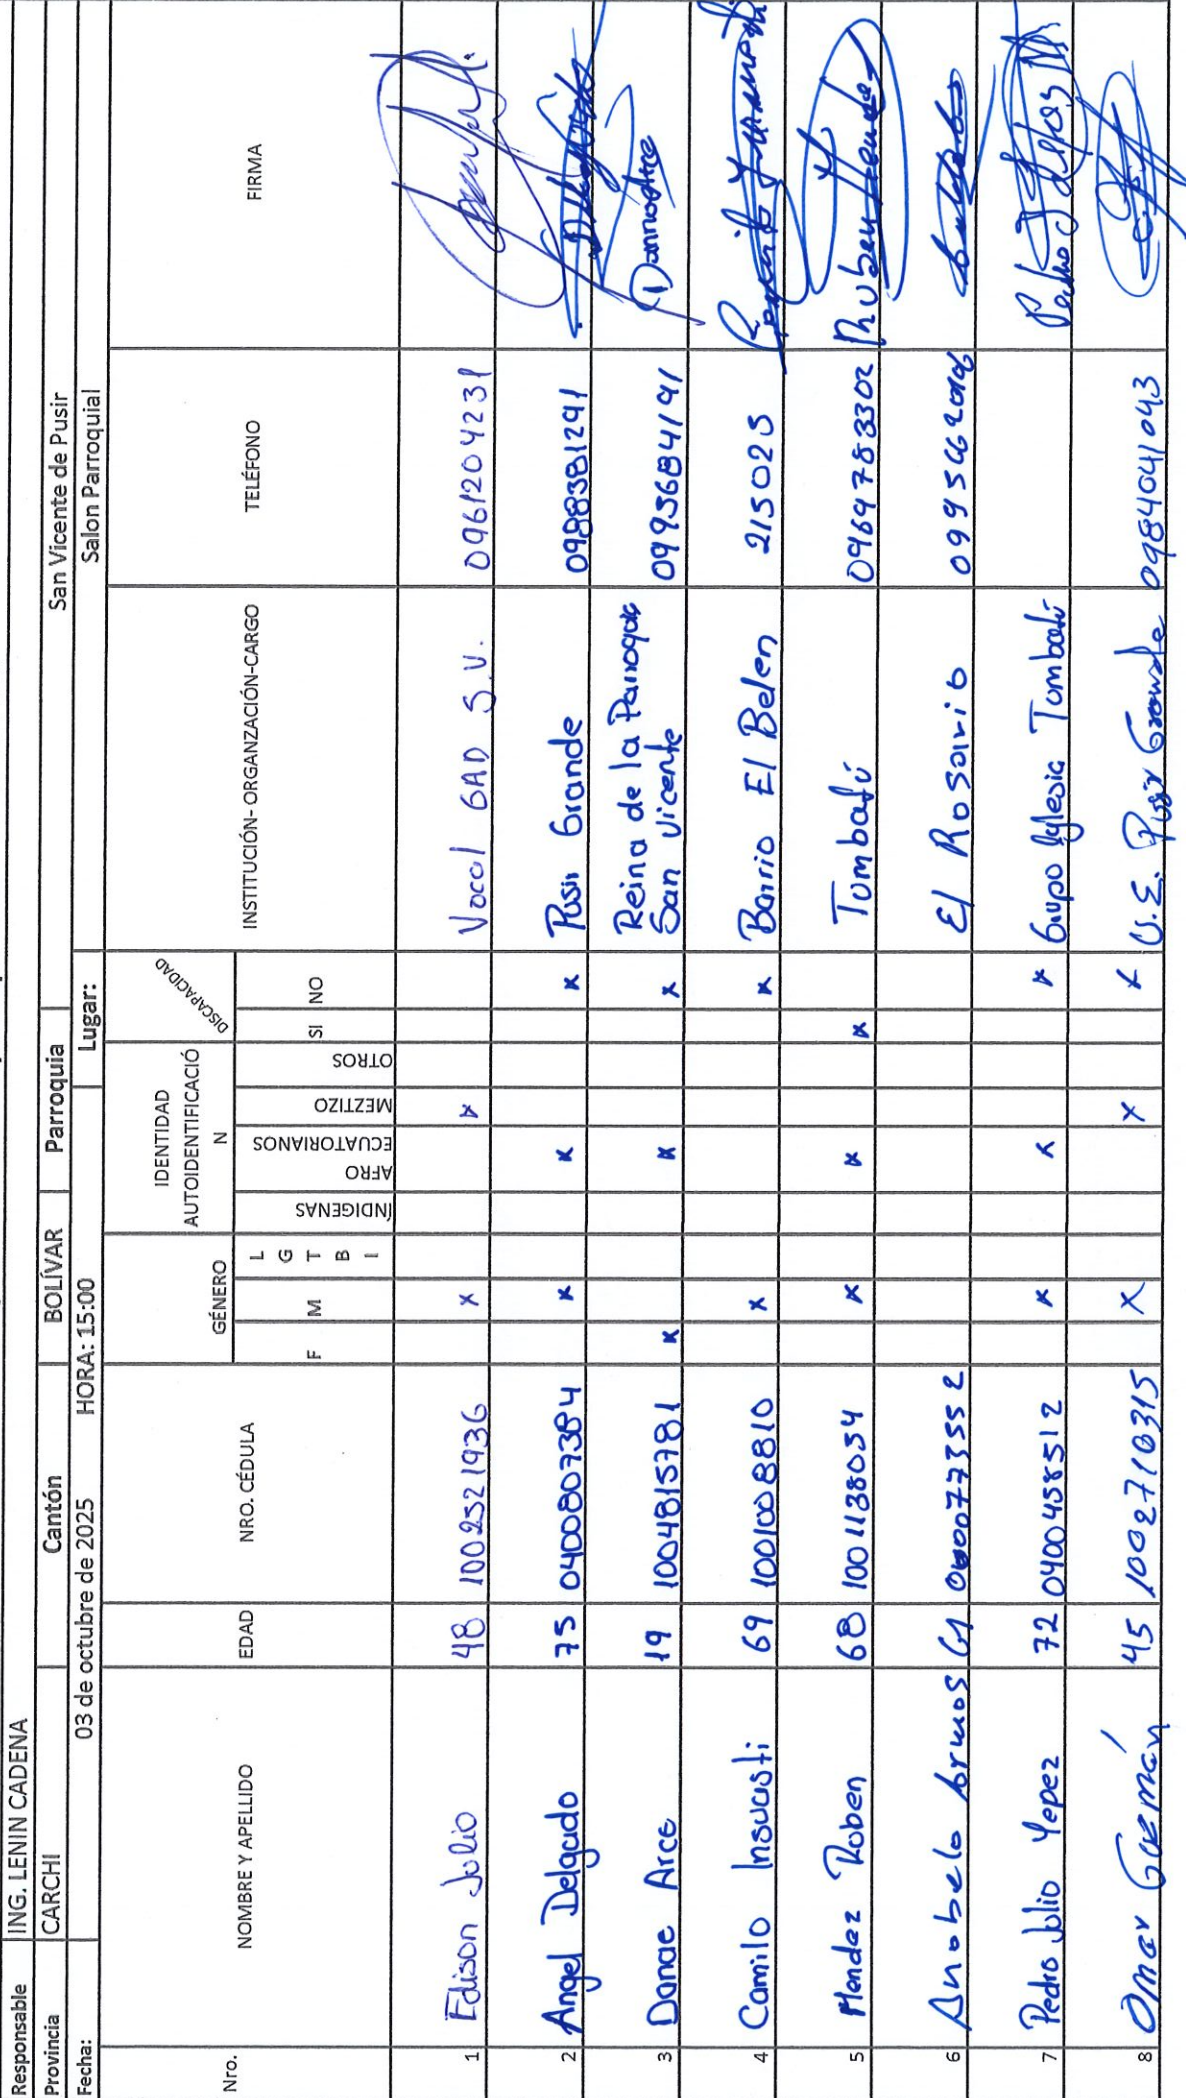 Responsable ING. LENIN CADENA
Provincia CARCHI Cantón BOLÍVAR Parroquia San Vicente de Pusir
Fecha: 03 de octubre de 2025 HORA: 15:00 Lugar: Salon Parroquial
Nro. NOMBRE Y APELLIDO EDAD NRO. CÉDULA GÉNERO IDENTIDAD AUTOIDENTIFICACIÓ N DISCAPACIDAD INSTITUCIÓN- ORGANZACIÓN-CARGO TELÉFONO FIRMA
F M L G T B I ÍNDIGENAS AFRO ECUATORIANOS MEZTIZO OTROS SI NO
1 Edison Julio 48 1002521936 x x Vocal GAD S.V. 0961204231
2 Angel Delgado 75 0400807384 x x x Pusir Grande 0988381291
3 Danae Arce 19 1004815781 x x x Reina de la Parroquia San Vicente 0993684191 Dannae Arce
4 Camilo Insuasti 69 1001008810 x x Barrio El Belen 215025
5 Mendez Ruben 68 1001138054 x x x Tumbatú 0969783302 Ruben Mendez
6 El Rosario
7 Pedro Julio Yepez 72 0400458512 x x x Grupo Iglesia Tumbatú Pedro J Yepez
8 Omar Guzmán 45 1002710315 x x x U.E. Pusir Grande 0984041043